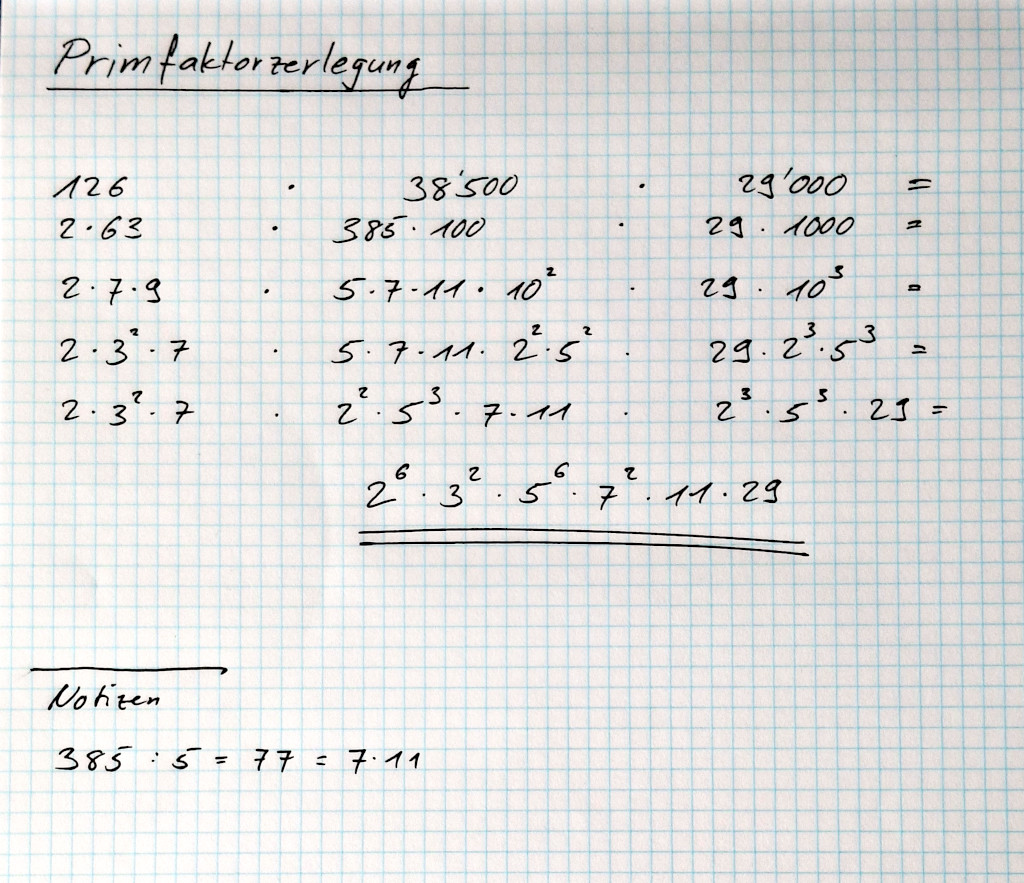 Primfaktorzerlegung
126 · 38'500 · 29'000 =
2·63 · 385·100 · 29·1000 =
2·7·9 · 5·7·11·10² · 29·10³ =
2·3²·7 · 5·7·11·2²·5² · 29·2³·5³ =
2·3²·7 · 2²·5³·7·11 · 2³·5³·29 =
2⁶·3²·5⁶·7²·11·29
Notizen
385 : 5 = 77 = 7·11